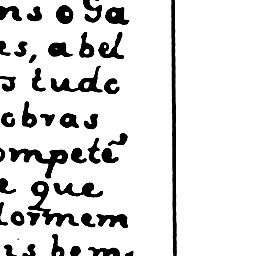 ns o Ga
es, a bel
s tudo
obras
ompetẽ
e que
dormem
is bem.